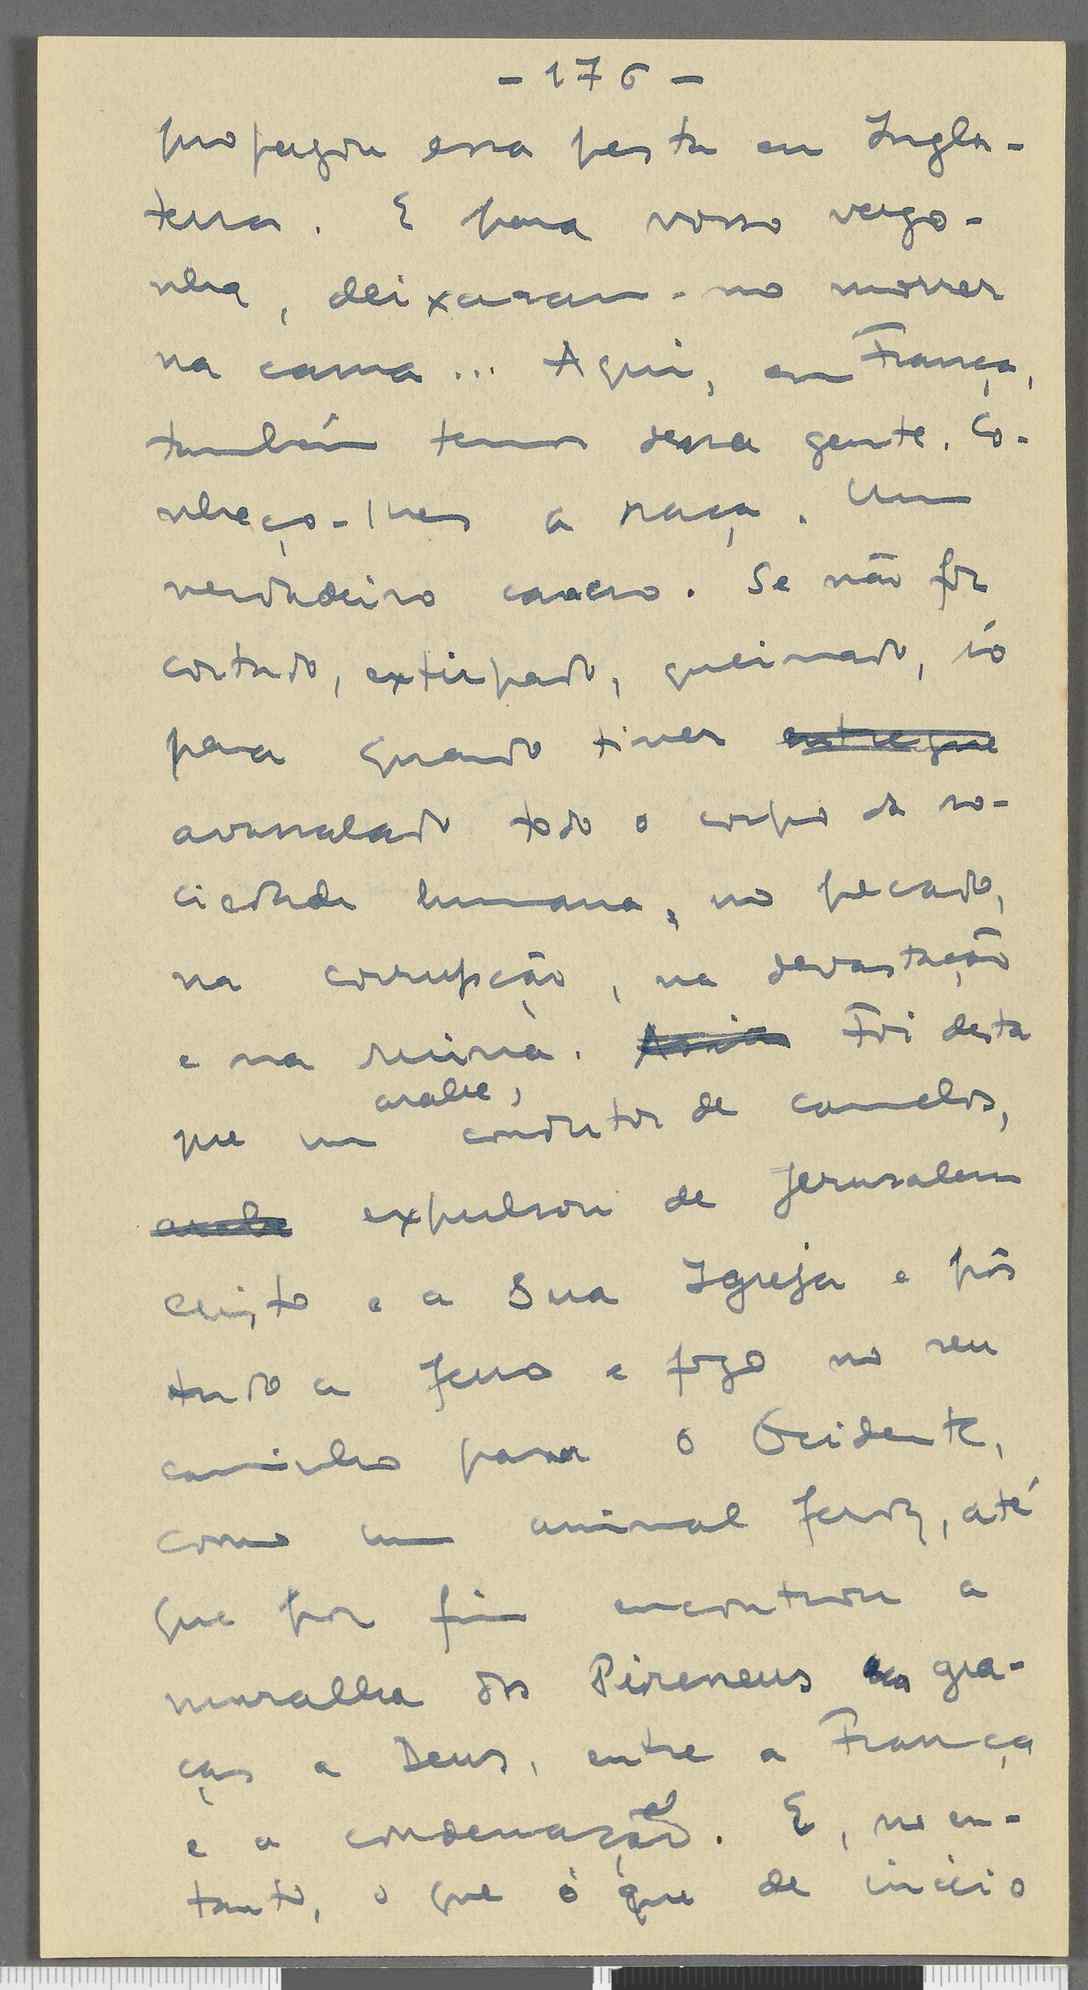 - 176 -
propagou essa peste em Ingla-
terra. E para vosso vergo-
nha, deixaram-no morrer
na cama... Aqui, em França,
também temos dessa gente. Co-
nheço-lhes a raça. Um
verdadeiro cancro. Se não for
cortado, extirpado, queimado, só
para quando tiver entregue
avassalado todo o corpo da so-
ciedade humana, no pecado,
na corrupção, na devastação
e na ruína. Assim Foi desta
que um arabe, condutor de camelos,
arabe expulsou de Jerusalem
Cristo e a Sua Igreja e pôs
tudo a ferro e fogo no seu
caminho para o Ocidente,
como um animal feroz, até
que por fim encontrou a
muralha dos Pireneus gra-
ças a Deus, entre a França
e a condenação. E, no en-
tanto, o que é que de início